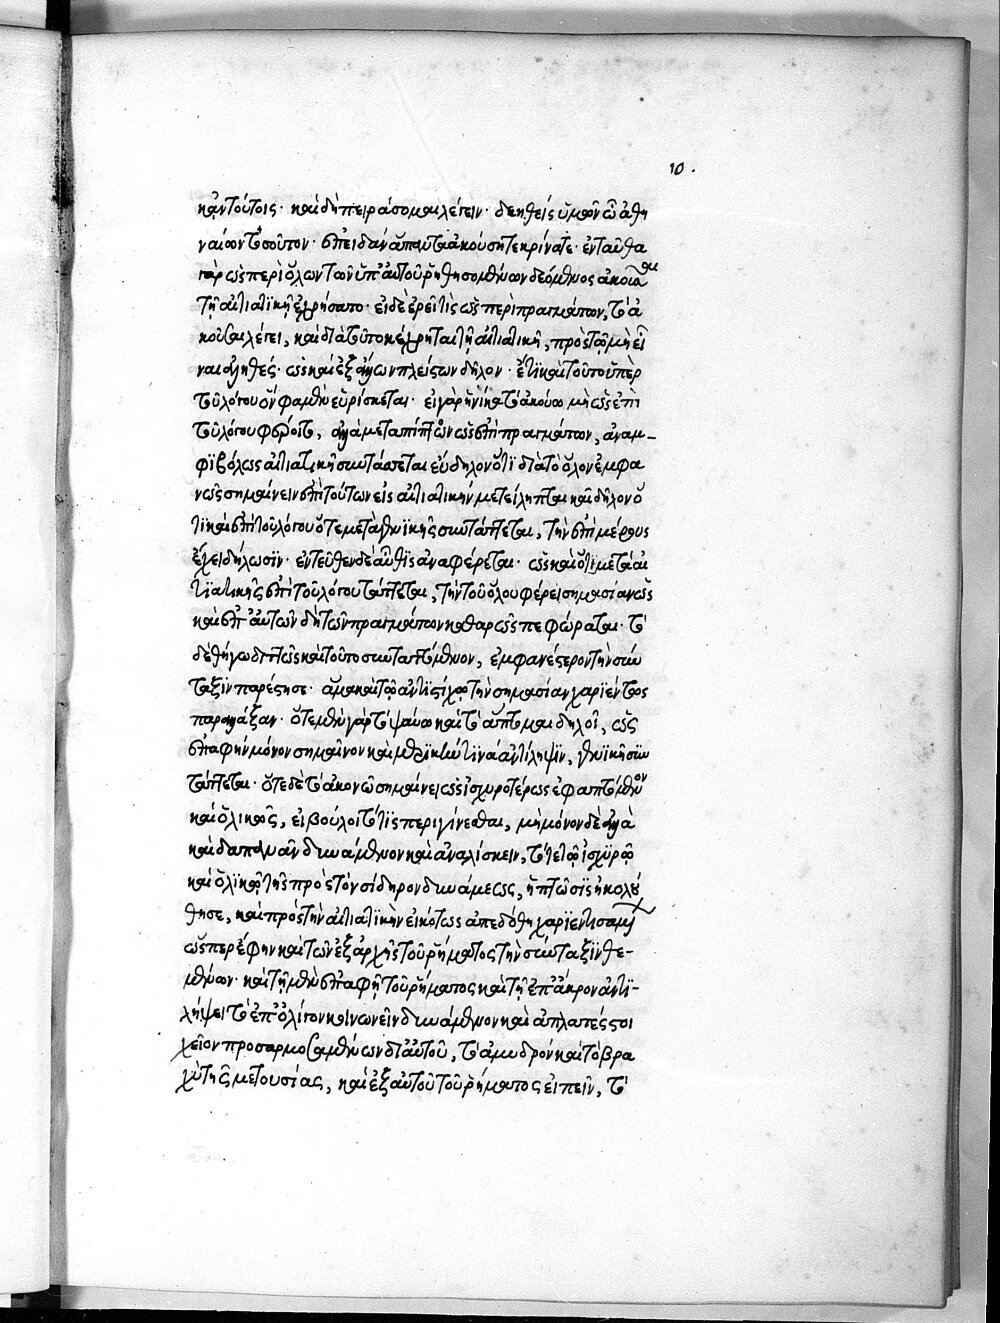 10.
κἀν τούτοις· καὶ δὴ πειράσομαι λέγειν· δεηθεὶς ὑμῶν ὦ ἀθη
ναίων τοσοῦτον· ἐπειδὰν ἅπαντα ἀκούσητε κρίνατε· ἐνταῦθα
γὰρ ὡς περὶ ὅλων τῶν ὑπ' αὐτοῦ ῥηθησομένων δεόμενος ἀκοῦσαι
τῇ αἰτιατικῇ ἐχρήσατο· εἰ δὲ ἐρεῖ τὶς ὡς περὶ πραγμάτων, τὸ ἀ
κοῦσαι λέγει, καὶ διὰ τοῦτο κέχρηται τῇ αἰτιατικῇ, πρὸς τῷ μὴ εἶ
ναι ἀληθές· ὡς καὶ ἐξ ἄλλων πλείστων δῆλον· ἔτι κατὰ τοῦτο ὑπὲρ
τοῦ λόγου ὃν φαμὲν εὑρίσκεται· εἰ γὰρ ἡνίκα τὸ ἀκούω μὴ ὡς ἐπὶ
τοῦ λόγου φέροιτο, ἀλλὰ μεταπίπτον ὡς ἐπὶ πραγμάτων, ἀναμ-
φιβόλως αἰτιατικῇ συντάσσεται εὔδηλον ὅτι διὰ τὸ ὅλον ἐμφα
νῶς σημαίνειν ἐπὶ τούτων εἰς αἰτιατικὴν μετείληπται καὶ δῆλον ὅ
τι καὶ ἐπὶ τοῦ λόγου ὅτε μετὰ γενικῆς συντάττεται, τὴν ἐπὶ μέρους
ἔχει δήλωσιν· ἐντεῦθεν δὲ αὖθις ἀναφέρεται· ὡς καὶ ὅτι μετὰ αἰ
τιατικῆς ἐπὶ τοῦ λόγου τάττεται, τὴν τοῦ ὅλου φέρει σημασίαν ὡς
καὶ ἐπ' αὐτῶν δὴ τῶν πραγμάτων καθαρῶς πεφώραται· τὸ
δὲ θήγω διττῶς κατὰ τοῦτο συνταττόμενον, ἐμφανέστερον τὴν σύν
ταξιν παρέστησε· ἅμα καὶ τῷ ἀντιστοίχῳ τὴν σημασίαν χαριέντως
παραλλάξαν· ὅτε μὲν γὰρ τὸ ψαύω καὶ τὸ ἅπτομαι δηλοῖ, ὡς
ἐπαφὴν μόνον σημαῖνον καὶ μερικήν τινα ἀντίληψιν, γενικῇ συν
τάττεται· ὅτε δὲ τὸ ἀκονῶ σημαίνει ὡς ἰσχυροτέρως ἐφαπτόμενον
καὶ ὁλικῶς, εἰ βούλοιτό τις περιγίνεσθαι, μὴ μόνον δὲ ἀλλὰ
καὶ δαπανᾶν δυνάμενον καὶ ἀναλίσκειν, τότε τῷ ἰσχυρῷ
καὶ ὁλικῷ τῆς πρὸς τὸν σίδηρον δυνάμεως, ἡ πτῶσις ἠκολού
θησε, καὶ πρὸς τὴν αἰτιατικὴν εἰκότως ἀπεδόθη χαριεντισαμέ
ὥσπερ ἔφην καὶ τῶν ἐξ ἀρχῆς τοῦ ῥήματος τὴν σύνταξιν θε-
μένων· καὶ τῇ μὲν ἐπαφῇ τοῦ ῥήματος καὶ τῇ ἐπ' ἄκρον ἀντι-
λήψει τὸ ἐπ' ὀλίγον κοινωνεῖν δυνάμενον καὶ ἀπλατὲς στοι
χεῖον προσαρμοσαμένων δι' αὐτοῦ, τὸ ἀμυδρὸν καὶ τὸ βρα
χὺ τῆς μετουσίας, καὶ ἐξ αὐτοῦ τοῦ ῥήματος εἰπεῖν, τὸ